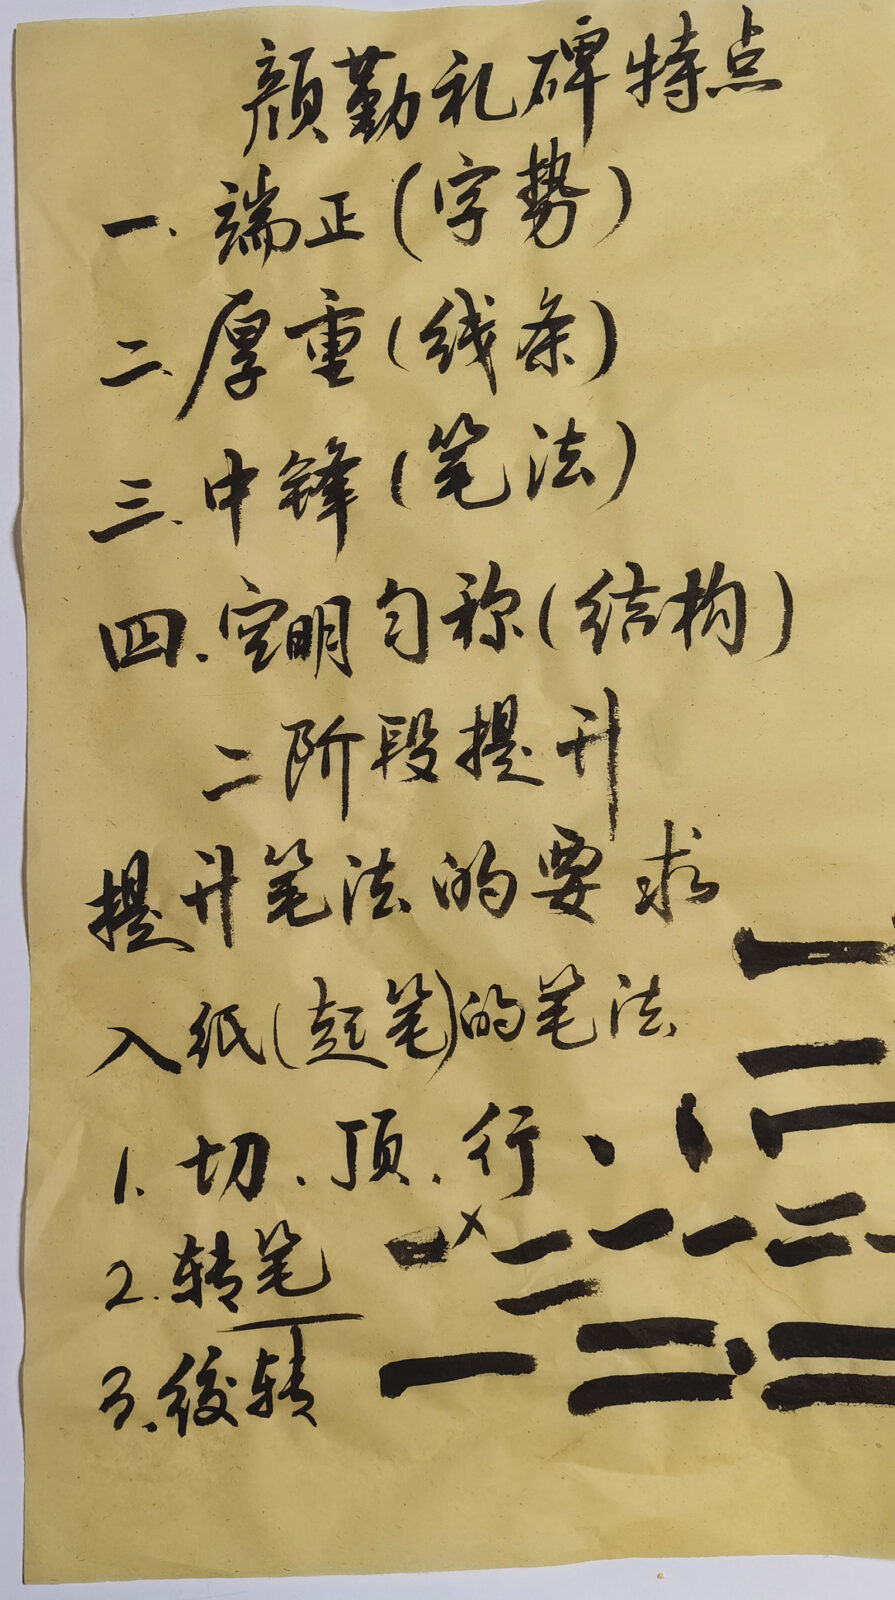 颜勤礼碑特点
一、端正(字势)
二、厚重(线条)
三、中锋(笔法)
四、空明匀称(结构)
二阶段提升
提升笔法的要求
入纸(起笔)的笔法
1.切、顶、行
2.转笔
3.绞转